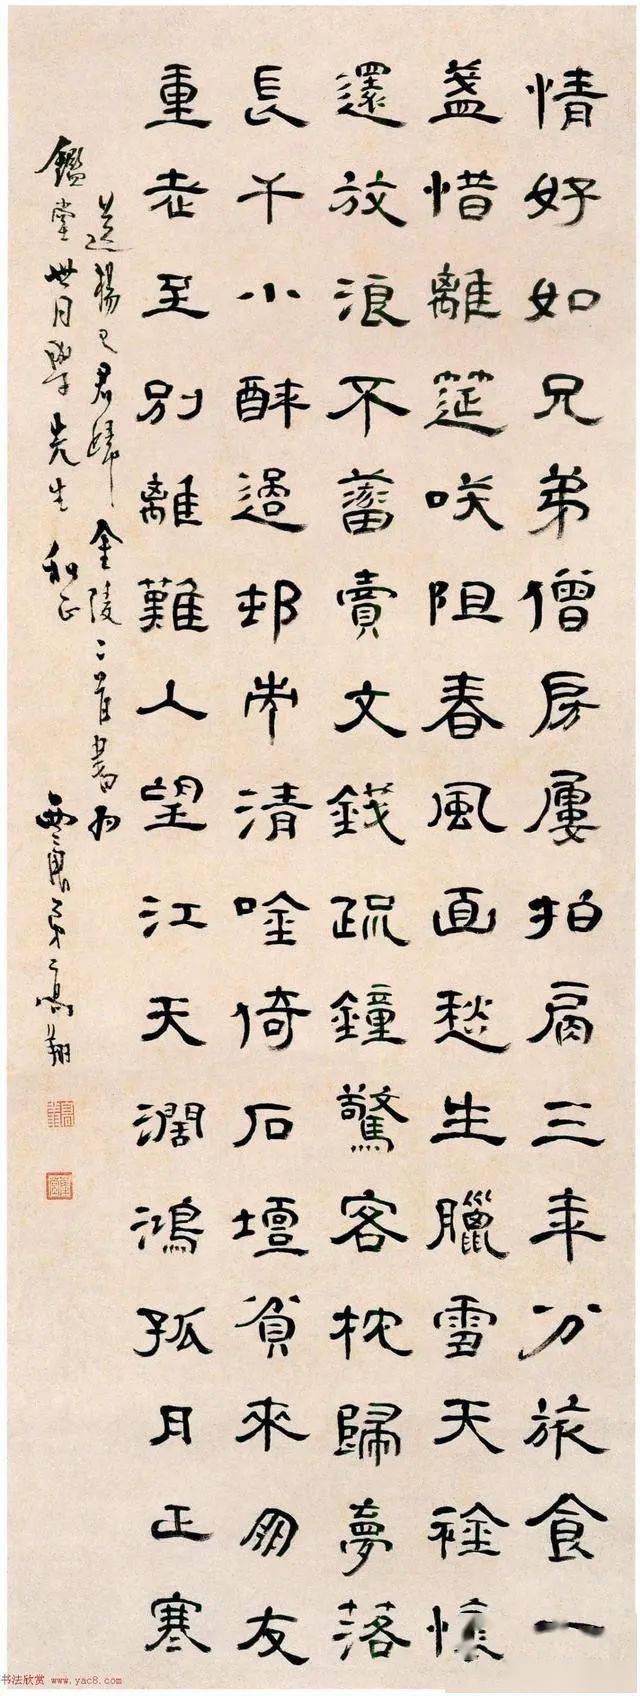 情好如兄弟僧房屢拍肩三年分旅食一
盞惜離筵咲阻春風面愁生臘雪天衿懷
還放浪不蓄賣文錢疏鐘驚客枕歸夢落
長干小酔過邨市清唫倚石壇貧來朋友
重老至別離難人望江天濶鴻孤月正寒
送楊已君歸金陵二首書為
鑑堂世同學先生和正 西唐弟高翔
书法欣赏 www.yac8.com